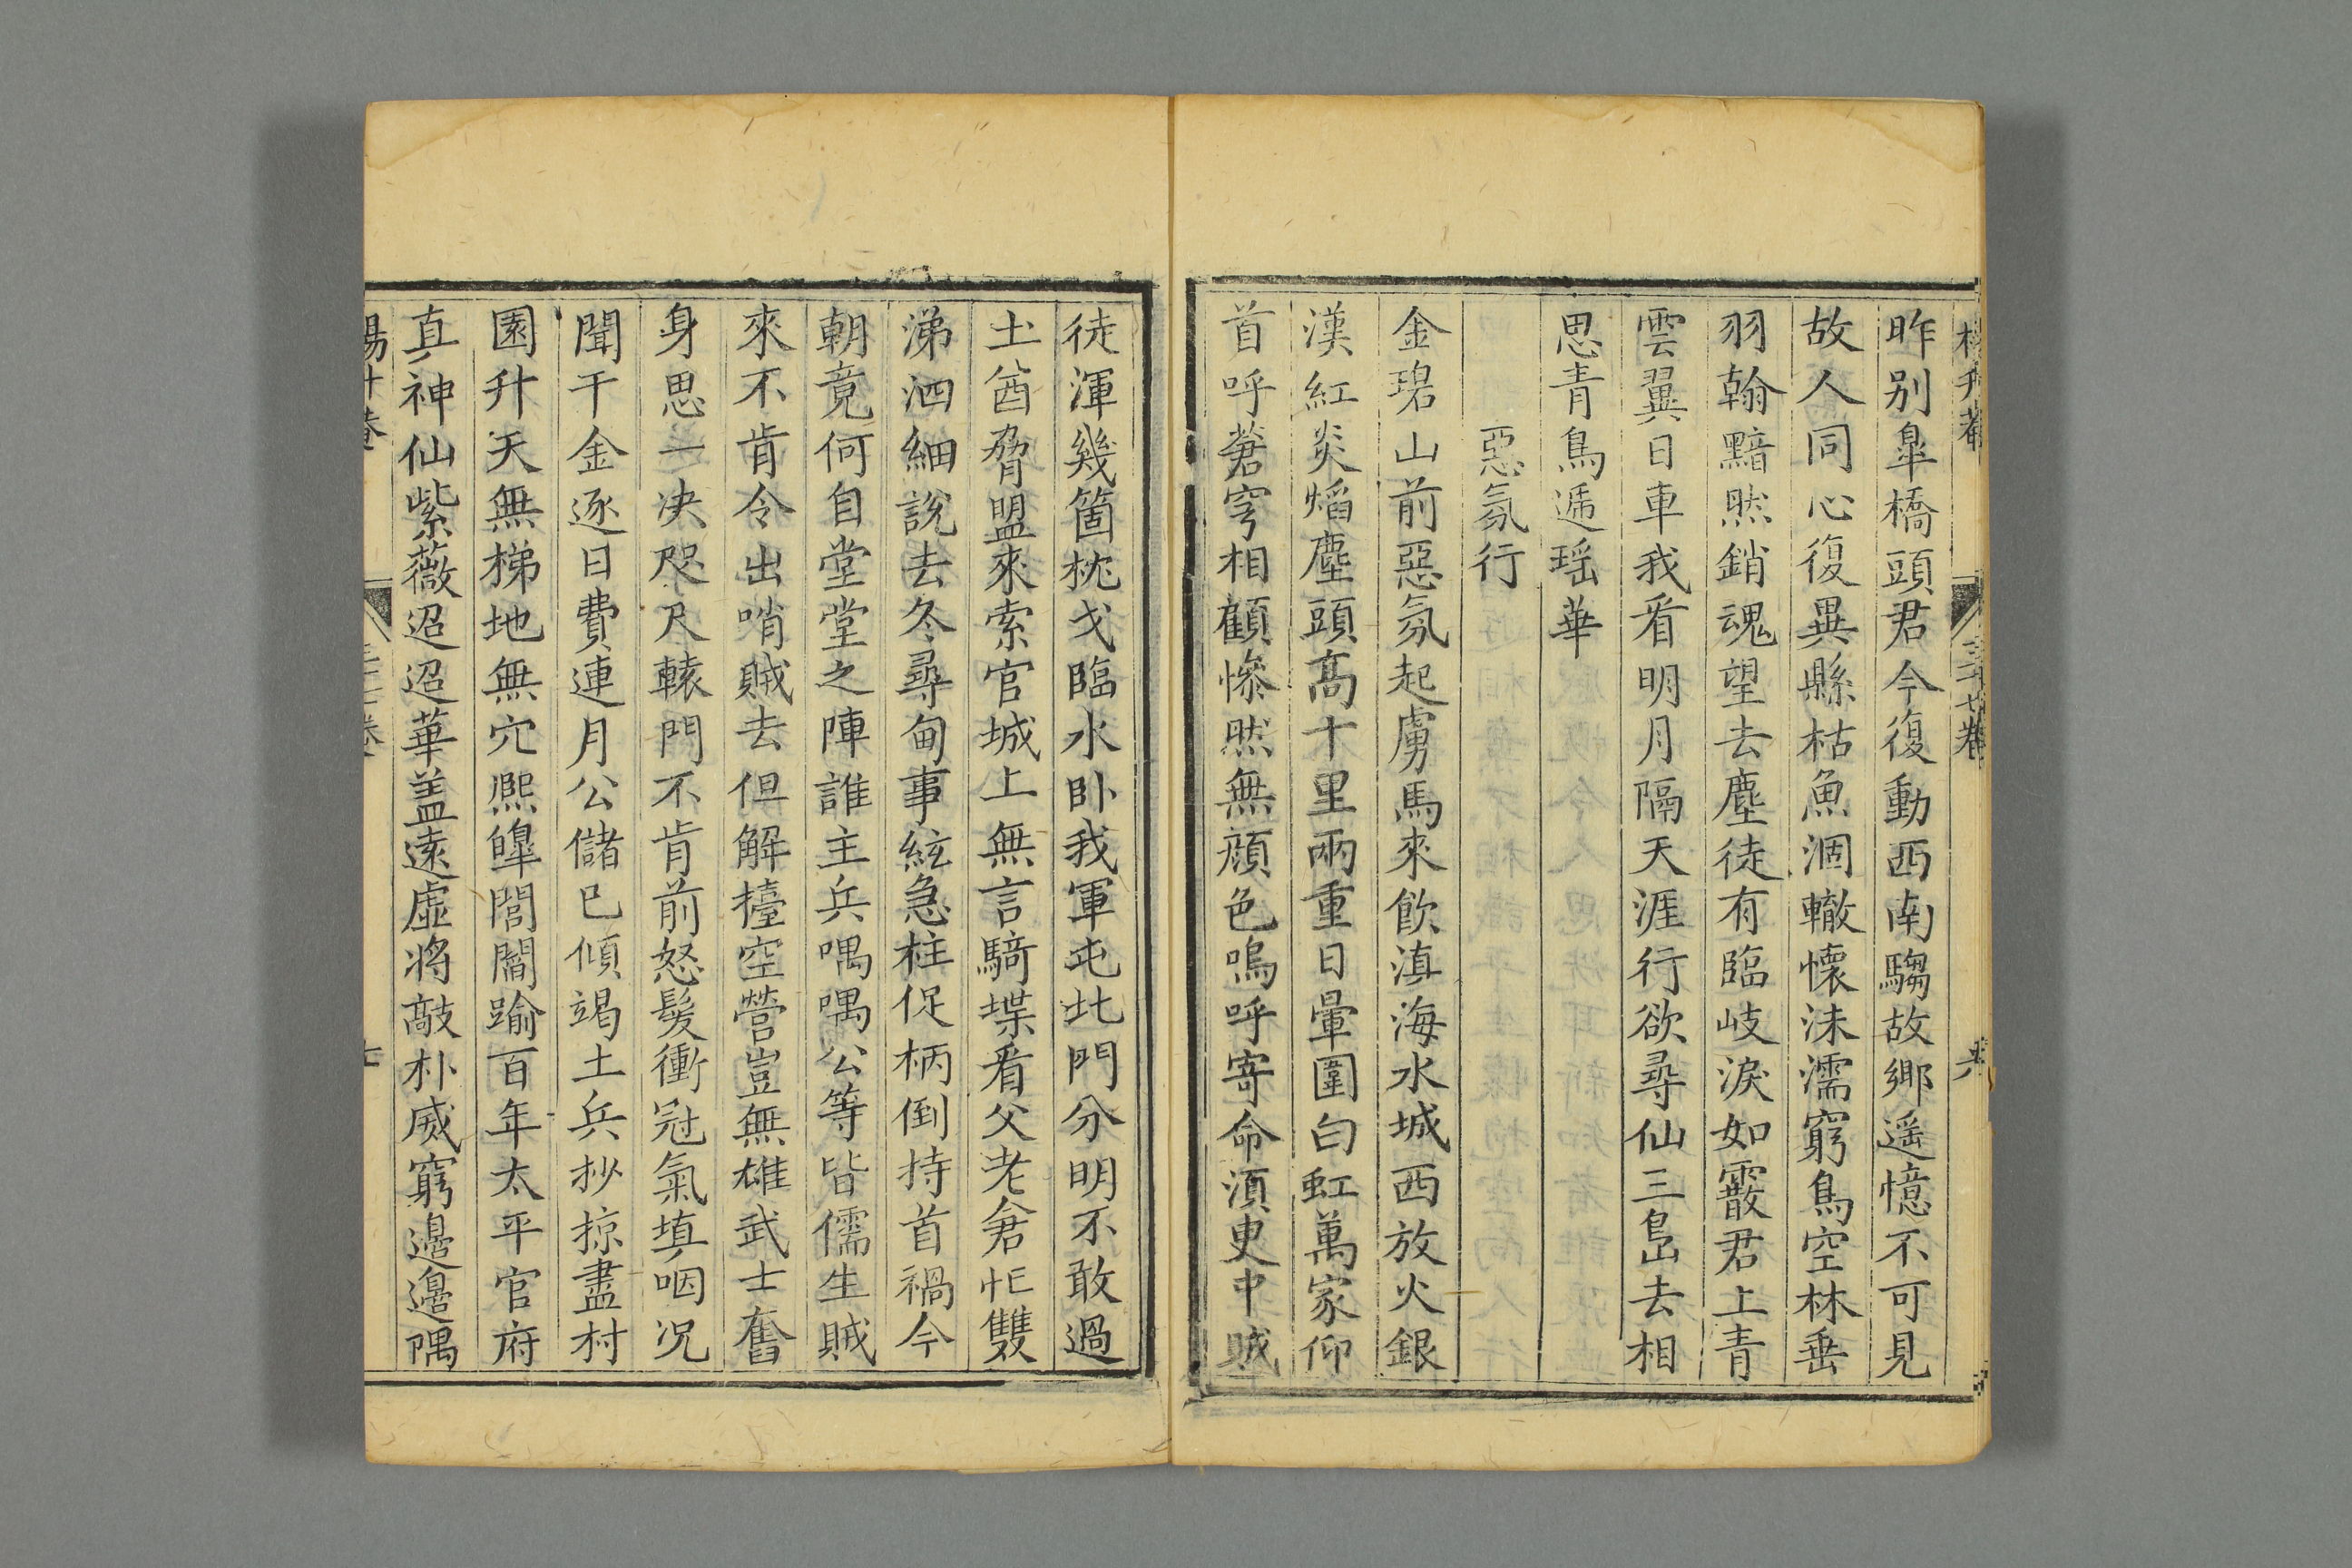 楊升菴
三十七卷
六
昨别臯橋頭君今復動西南騶故鄉遥憶不可見
故人同心復異縣枯魚涸轍懷沬濡窮鳥空林垂
羽翰黯然銷魂望去塵徒有臨岐淚如霰君上青
雲翼日車我看明月隔天涯行欲尋仙三島去相
思青鳥遞瑶華
惡氛行
金碧山前惡氛起虜馬來飲滇海水城西放火銀
漢紅炎熖塵頭高十里兩重日暈圍白虹萬家仰
首呼蒼穹相顧慘然無顔色嗚呼寄命湏㬰中賊
徒渾幾箇枕戈臨水卧我軍屯北門分明不敢過
土酋脅盟來索官城上無言騎堞看父老倉忙雙
涕泗細說去冬尋甸事絃急柱促柄倒持首禍今
朝竟何自堂堂之陣誰主兵喁喁公等皆儒生賊
來不肯令出哨賊去但解擡空營豈無雄武士奮
身思一决咫尺轅門不肯前怒髮衝冠氣填咽况
聞千金逐日費連月公儲已傾竭土兵抄掠盡村
園升天無梯地無穴熈皥閭閻踰百年太平官府
真神仙紫薇迢迢華盖遠虛將敲朴威窮邊邊隅
楊升菴
三十七卷
七